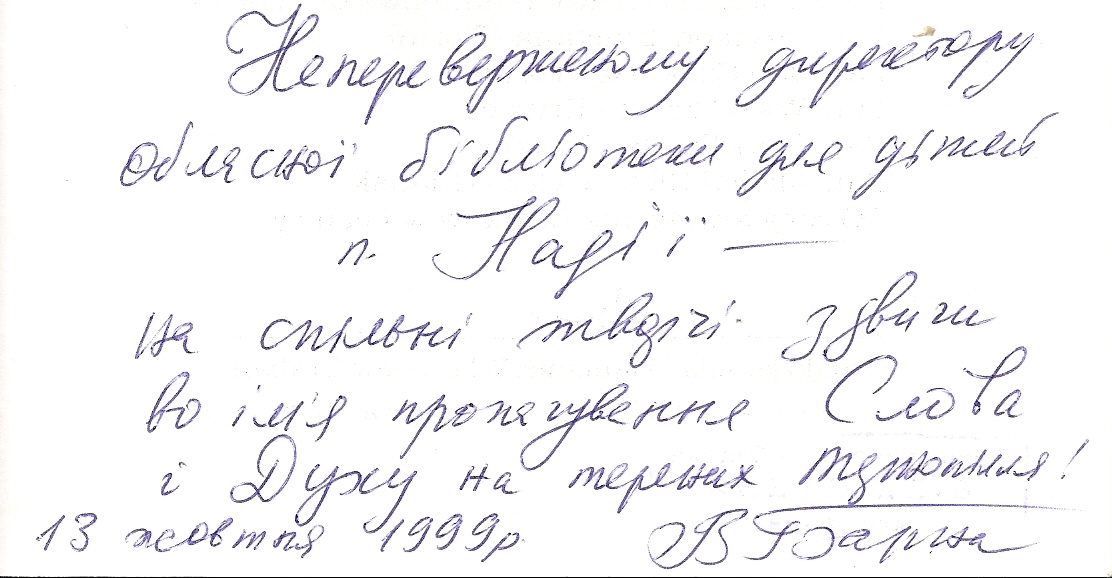 Неперевершеному директору
обласної бібліотеки для дітей
п. Надії —
на спільні творчі здвиги
во ім'я пропагування Слова
і Духу на теренах Тернопілля!
13 жовтня 1999р В Барна